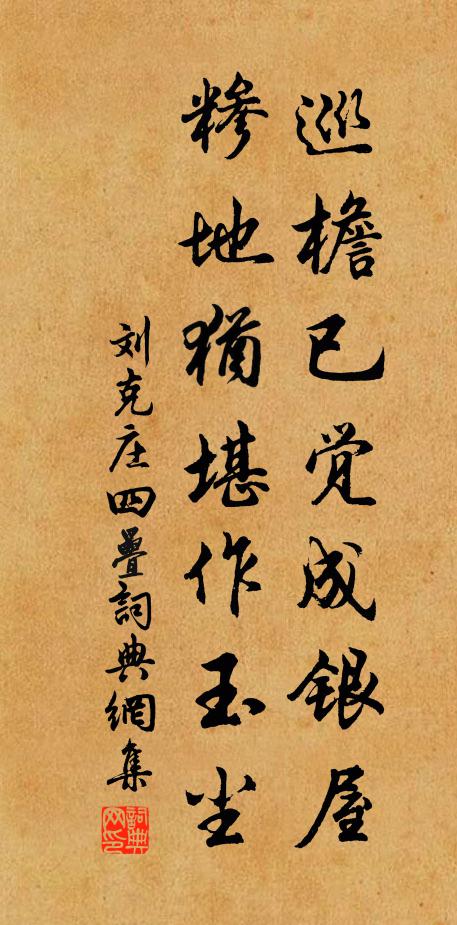 巡檐已觉成银屋
糁地犹堪作玉尘
刘克庄四叠词典網集
詞典网印